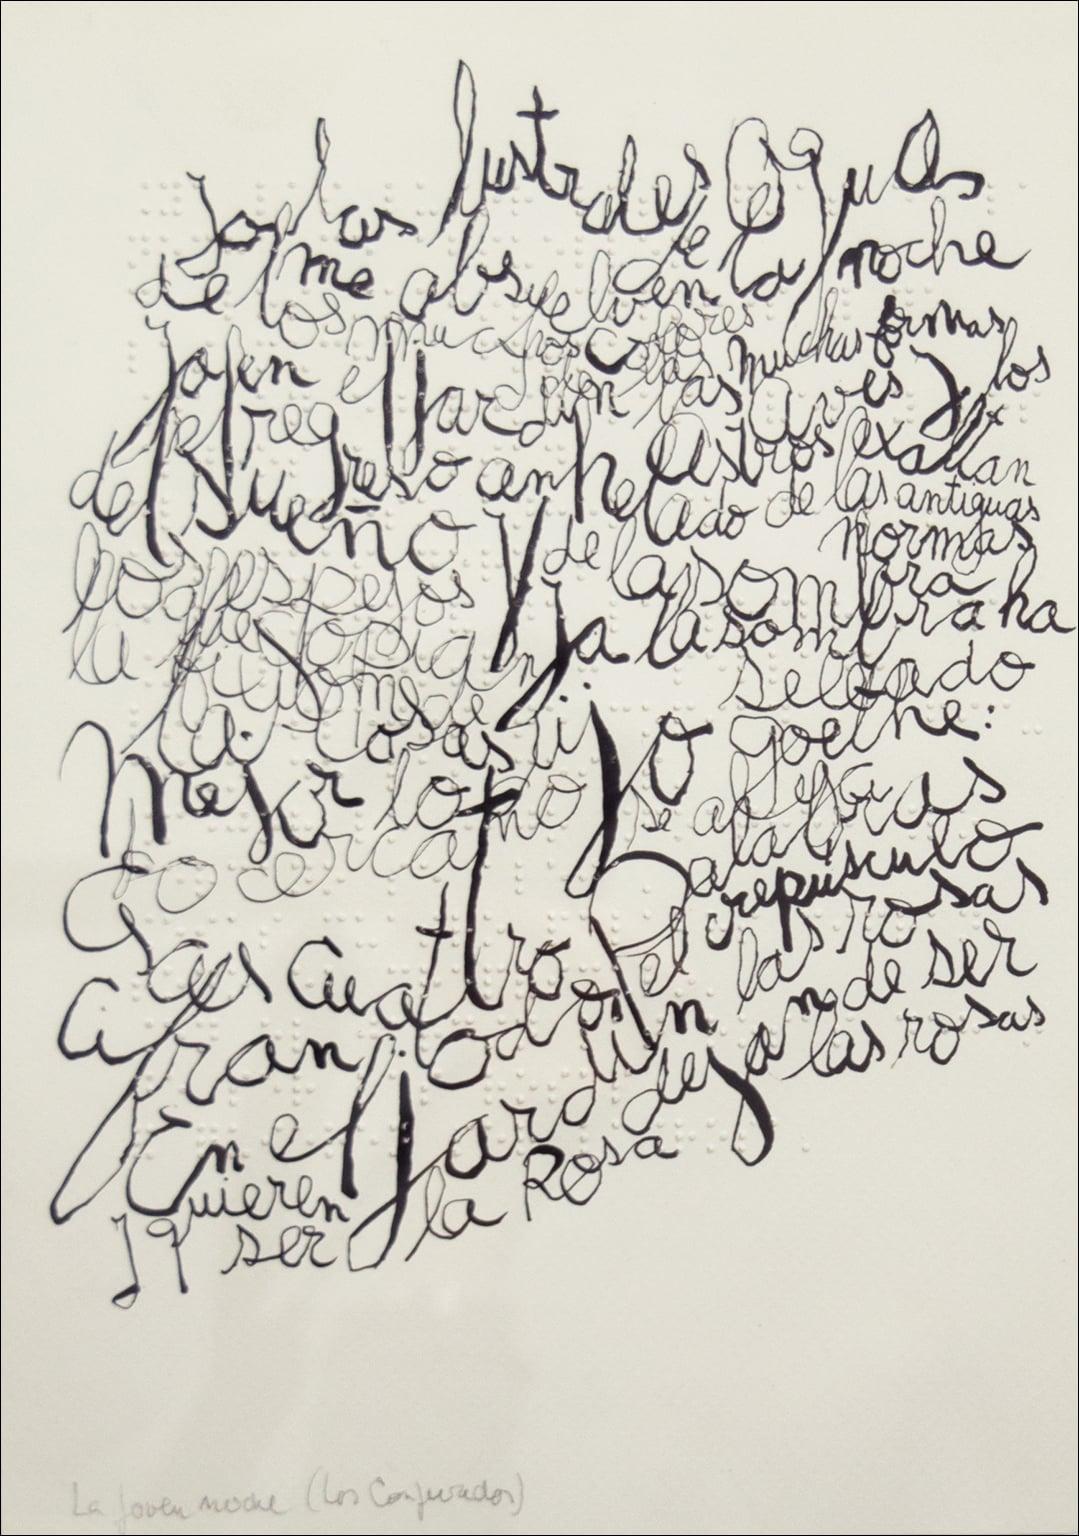 Ya las lustrales aguas
me absuelven de la noche
de los muchos colores
y de las muchas formas
Ya en el jardín las aves y los
astros exaltan
el regreso anhelado de las antiguas
normas
del sueño y de la sombra
Ya la sombra ha
sellado
los espejos que copian
la ficción de
las cosas
Mejor lo dijo Goethe:
Lo cercano se aleja
Esas cuatro palabras
cifran todo el crepúsculo
En el jardín las rosas
dejan de ser las rosas
y quieren ser la Rosa
La joven noche (Los Conjurados)